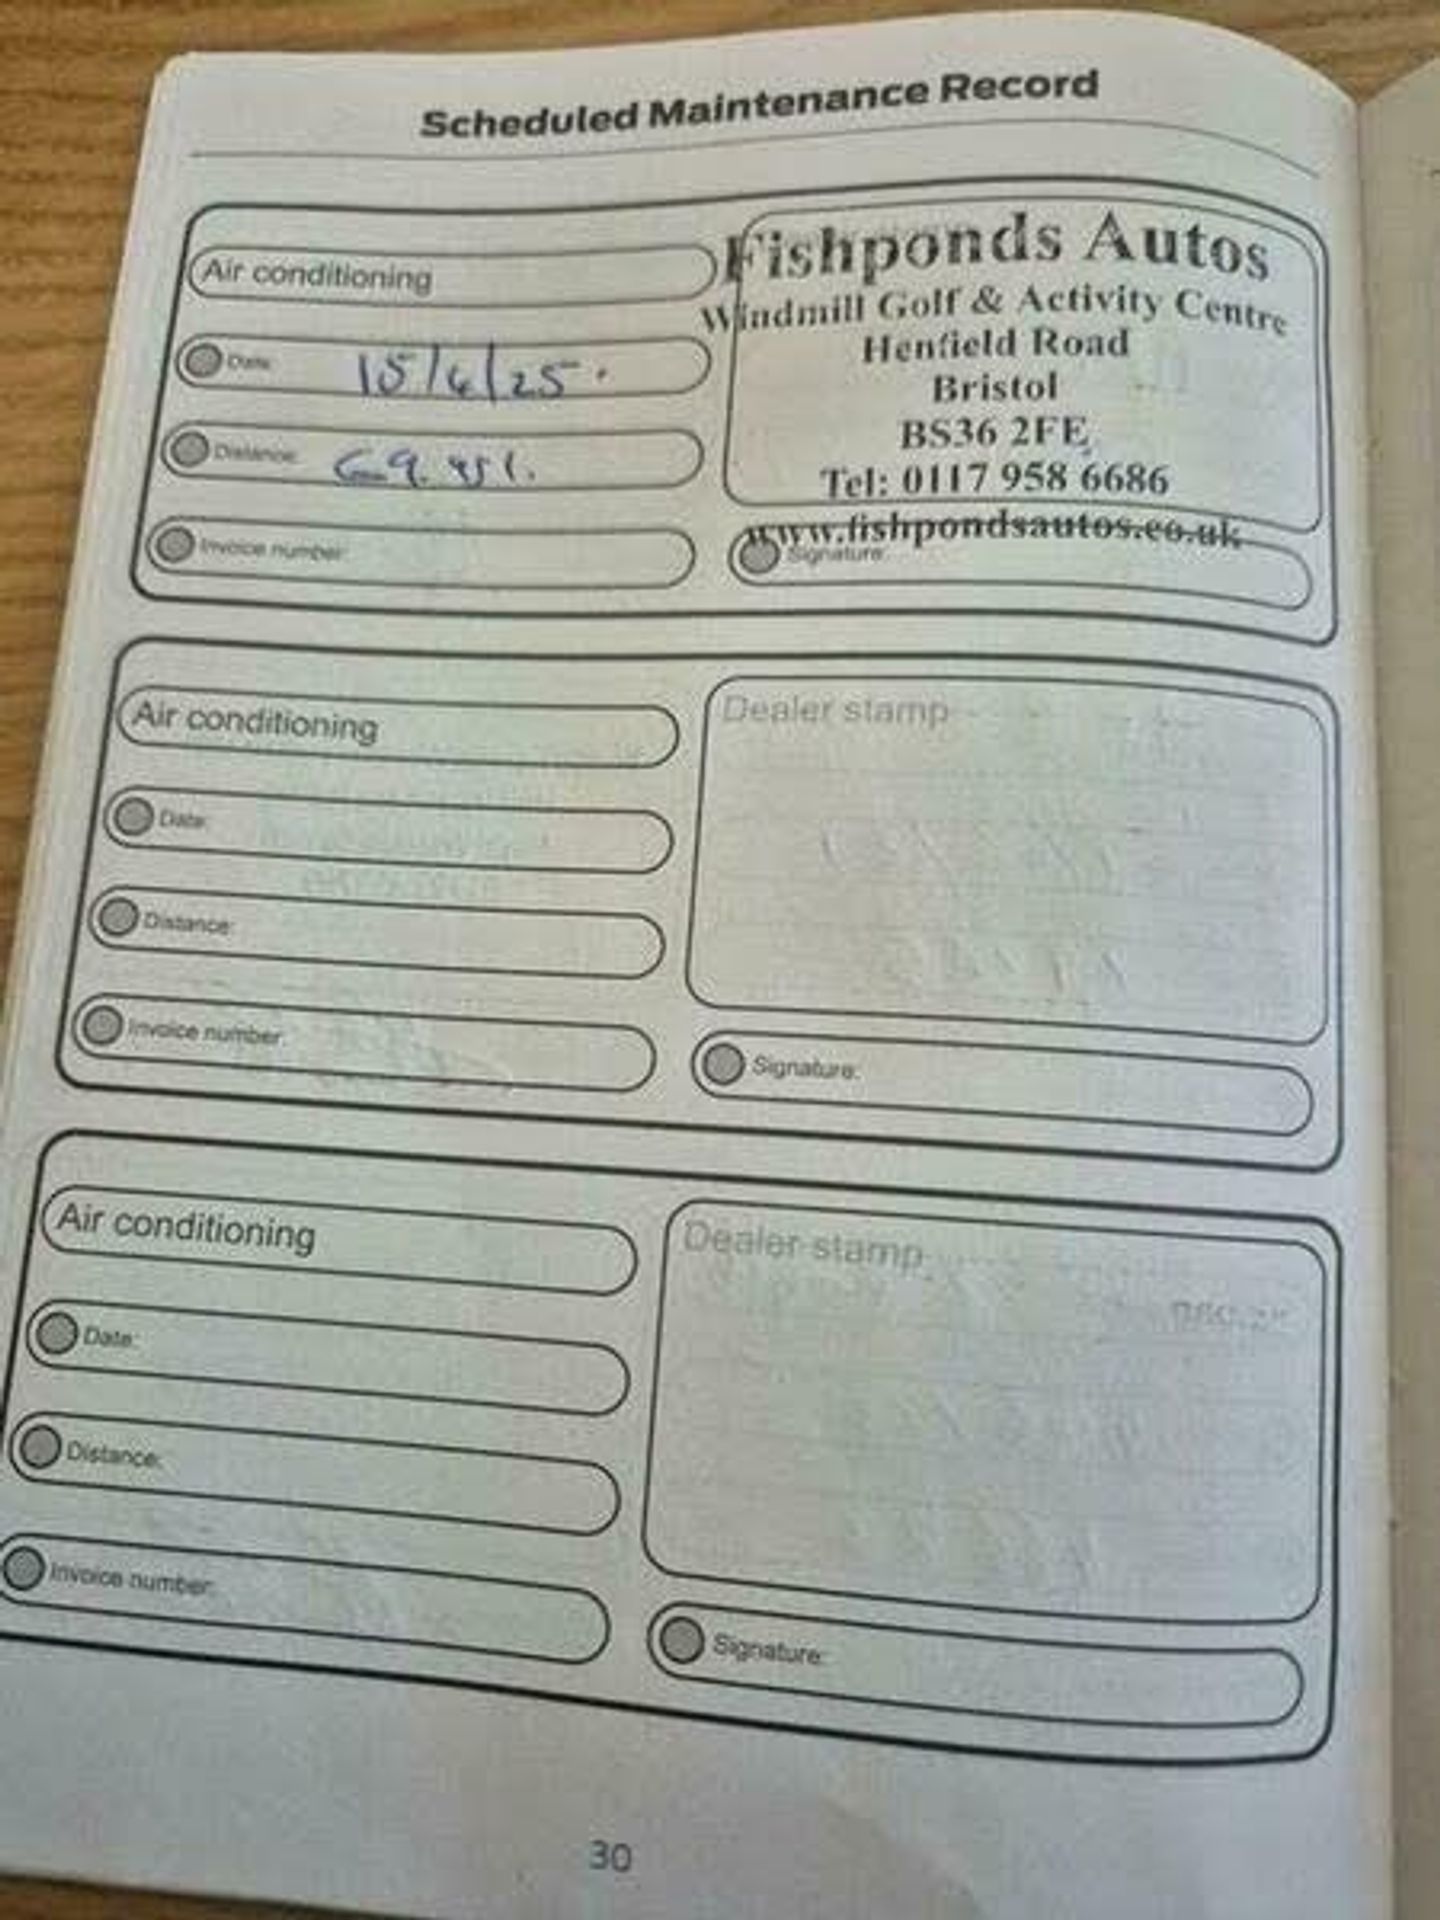 Scheduled Maintenance Record
Air conditioning
Date: 15/4/25.
Distance: 69.951.
Invoice number:
Fishponds Autos
Windmill Golf & Activity Centre
Henfield Road
Bristol
BS36 2FE
Tel: 0117 958 6686
www.fishpondsautos.co.uk
Signature:
Air conditioning
Date:
Distance:
Invoice number:
Dealer stamp
Signature:
Air conditioning
Date:
Distance:
Invoice number:
Dealer stamp
Signature:
30